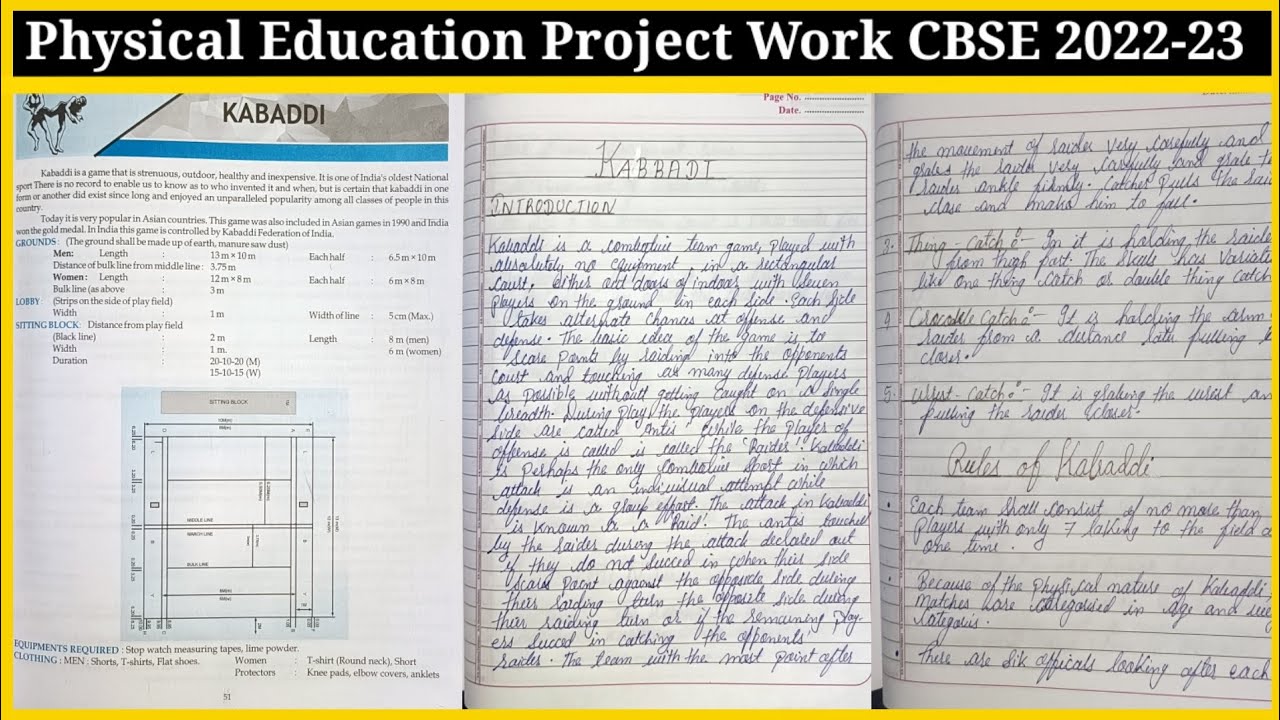 Physical Education Project Work CBSE 2022-23
KABADDI
Kabaddi is a game that is strenuous, outdoor, healthy and inexpensive. It is one of India's oldest National
sport There is no record to enable us to know as to who invented it and when, but is certain that kabaddi in one
form or another did exist since long and enjoyed an unparalleled popularity among all classes of people in this
country.
Today it is very popular in Asian countries. This game was also included in Asian games in 1990 and India
won the gold medal. In India this game is controlled by Kabaddi Federation of India.
GROUNDS : (The ground shall be made up of earth, manure saw dust)
Men: Length : 13 m × 10 m Each half : 6.5 m × 10 m
Distance of bulk line from middle line : 3.75 m
Women : Length : 12 m × 8 m Each half : 6 m × 8 m
Bulk line (as above 3 m
LOBBY : (Strips on the side of play field)
Width : 1 m Width of line : 5 cm (Max.)
SITTING BLOCK: Distance from play field
(Black line) : 2 m Length : 8 m (men)
Width : 1 m. 6 m (women)
Duration 20-10-20 (M)
15-10-15 (W)
SITTING BLOCK
MIDDLE LINE
MARCH LINE
BULK LINE
EQUIPMENTS REQUIRED : Stop watch measuring tapes, lime powder.
CLOTHING : MEN : Shorts, T-shirts, Flat shoes. Women : T-shirt (Round neck), Short
Protectors : Knee pads, elbow covers, anklets
51
Page No.
Date.
KABBADI
INTRODUCTION
Kabaddi is a combative team game, played with
absolutely no equipment, in a rectangular
court, either odd doors of indoor with seven
players on the ground in each side. Each side
takes alternate chances at offense and
defense. The basic idea of the game is to
scare points by raiding into the opponents
court and touching as many defense players
as possible without getting caught on a single
breadth. During play, the players on the defensive
side are called Antis while the player of
offense is called is called the 'Raider'. Kabaddi
is Perhaps the only combative sport in which
attack is an individual attempt while
defense is a group effort. The attack in Kabaddi
is known as a 'Raid'. The antis touched
by the raider during the attack declared out
if they do not succed in when this side
scars point against the opposide side during
their raiding turn the opposite side during
their raiding turn or if the remaining play-
ers succed in catching the opponents'
raider. The team with the most point after
the movement of raider very carefully and
the raider very carefully and
raiders ankle firmly. Catcher pulls the
close and make him to fall.
3. Thing - catch :- In it is holding the raide
from thigh part. The skill has
like one thing catch or double thing catch
4. Crocodile catch :- It is holding the arm
raider from a distance with pulling
closer.
5. Wrest - catch :- It is grabing the wrest an
pulling the raider closer.
Rules of Kabaddi
Each team shall consist of no more than
players with only 7 taking to the field a
one time.
Because of the physical nature of Kabaddi,
Matches are categorised in age and
categories.
There are sik officals looking after each